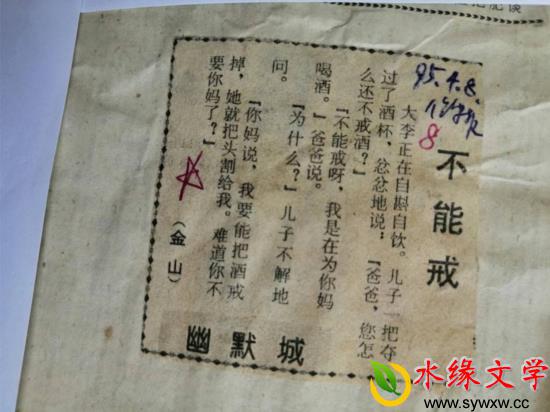 95.4.8.
8
不能戒
大李正在自斟自饮。儿子一把夺
过了酒杯，忿忿地说：『爸爸，您怎
么还不戒酒？』
『不能戒呀，我是在为你妈
喝酒。』爸爸说。
『为什么？』儿子不解地
问。
『你妈说，我要能把酒戒
掉，她就把头割给我。难道你不
要你妈了？』
（金山）
幽默城
水缘文学
www.sywxw.cc